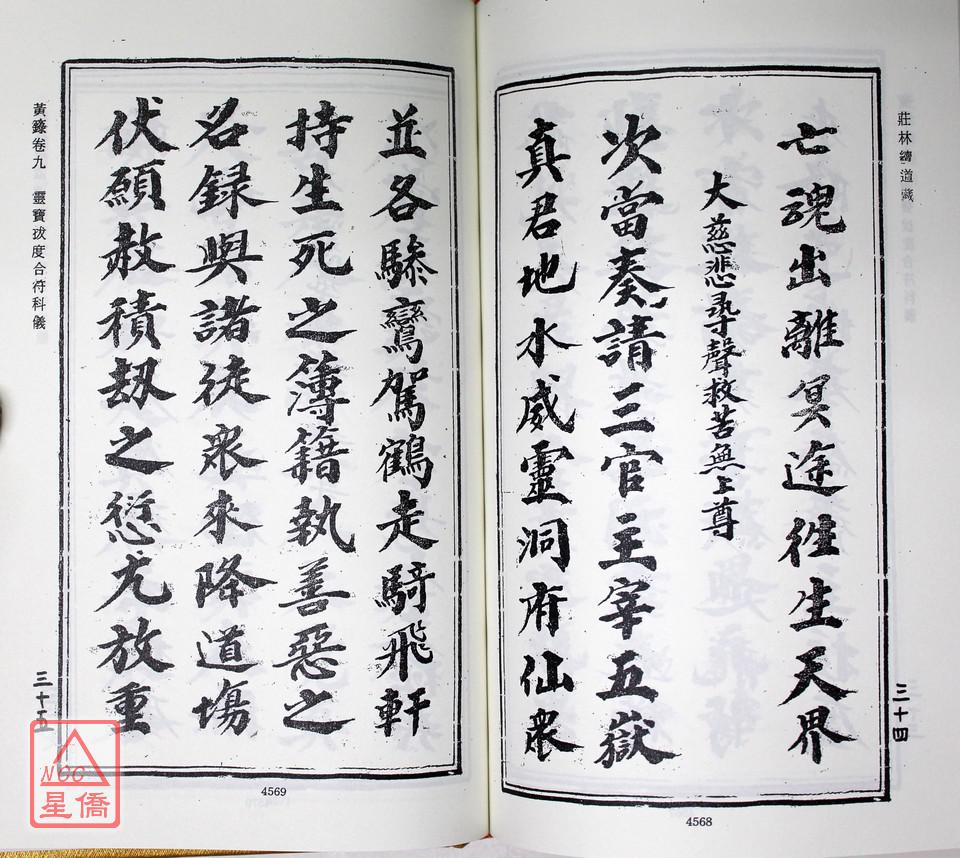 莊林續道藏
亡魂出離冥途徃生天界
大慈悲尋聲救苦無上尊
次當奏請三官主宰五嶽
真君地水威靈洞府仙衆
三十四
4568
並各驂鸞駕鶴走騎飛軒
持生死之簿籍執善惡之
名録與諸徒衆來降道場
伏願赦積劫之愆尤放重
黃籙卷九 靈寶拔度合符科儀
三十五
4569
NCC
星僑